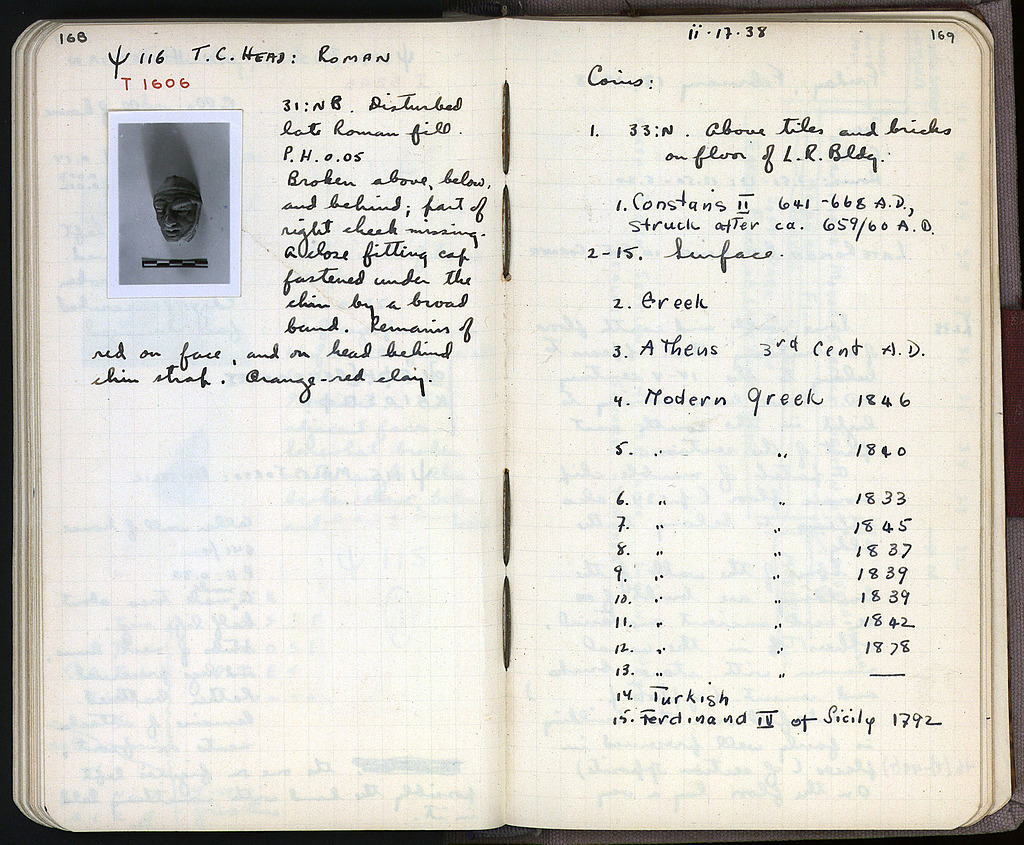 168
Ψ 116 T.C. HEAD: ROMAN
T 1606
31:NB. Disturbed
late Roman fill.
P.H. 0.05
Broken above, below,
and behind; part of
right cheek missing.
A close fitting cap
fastened under the
chin by a broad
band. Remains of
red on face, and on head behind
chin strap. Orange-red clay.
ii·17·38
169
Coins:
1. 33:N. Above tiles and bricks
on floor of L.R. Bldg.
1. Constans II 641-668 A.D.,
struck after ca. 659/60 A.D.
2-15. Surface.
2. Greek
3. Athens 3rd Cent A.D.
4. Modern Greek 1846
5. " " 1840
6. " " 1833
7. " " 1845
8. " " 1837
9. " " 1839
10. " " 1839
11. " " 1842
12. " " 1878
13. " " —
14. Turkish
15. Ferdinand IV of Sicily 1792